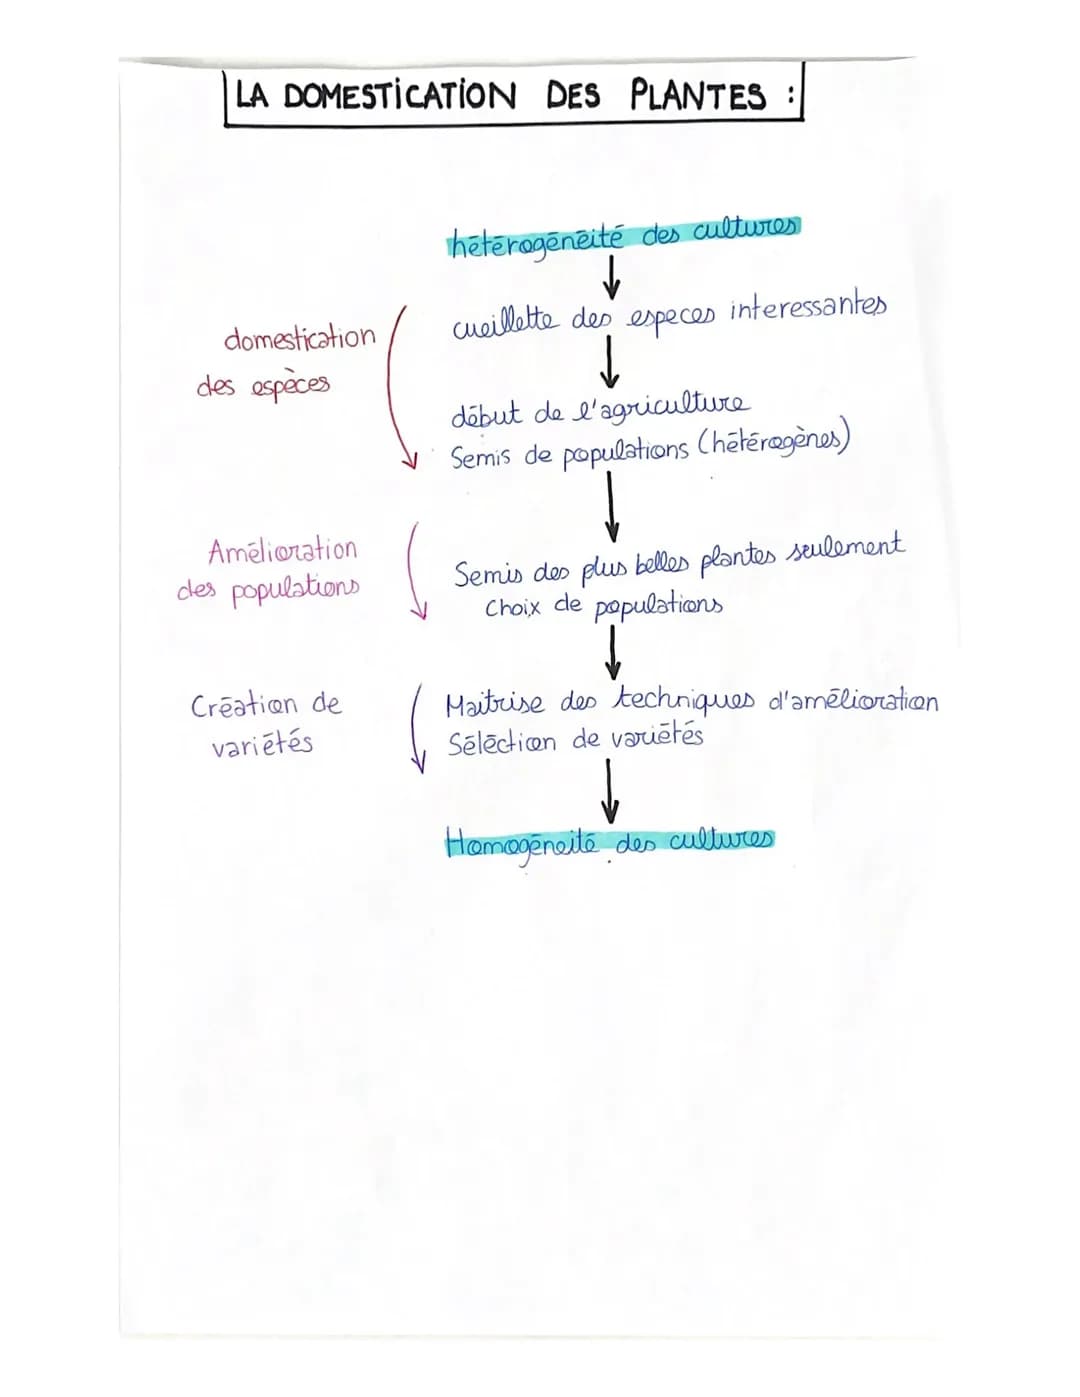 LA DOMESTICATION DES PLANTES :
hétérogénéité des cultures
cueillette des especes interessantes
domestication
des espèces
début de l'agriculture
Semis de populations (hétérogènes)
Amélioration
des populations
Semis des plus belles plantes seulement
Choix de populations
Création de
variétés
Maitrise des techniques d'amélioration
Séléction de variétés
Homogéneité des cultures